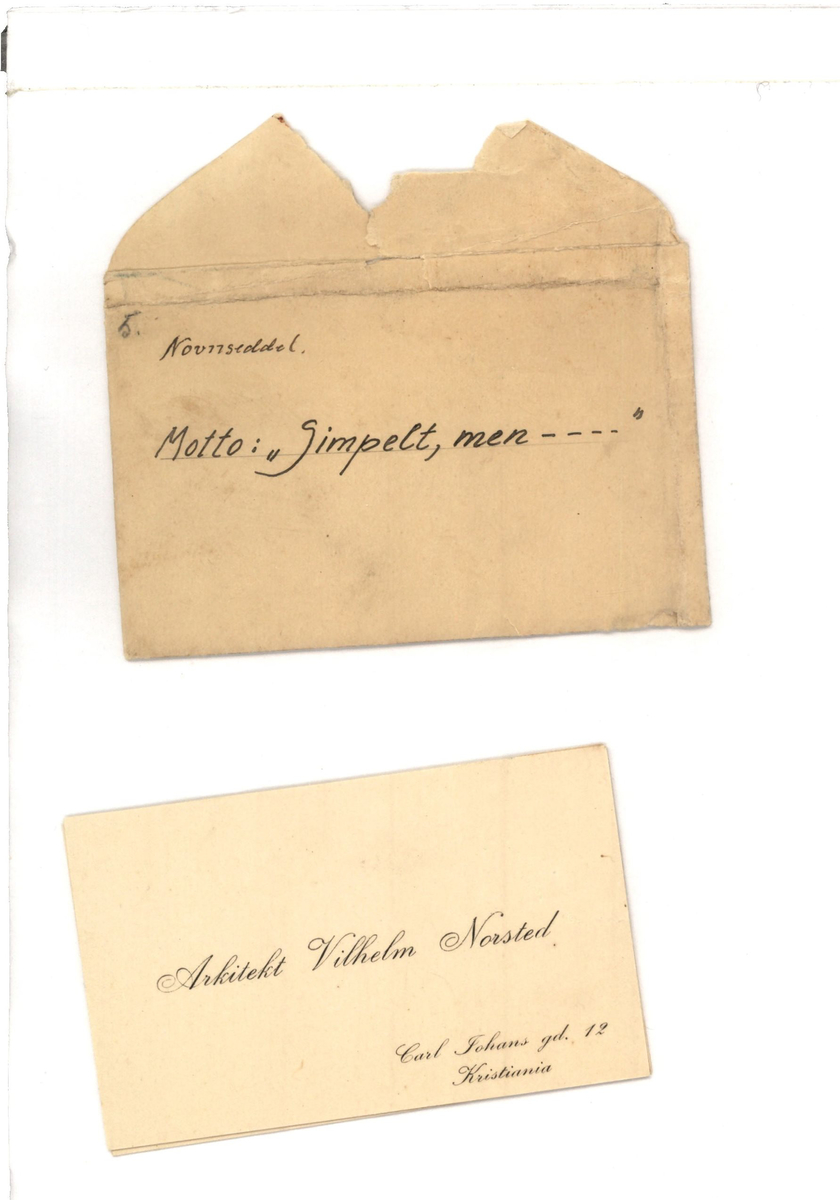 5.
Navnseddel.
Motto: „Simpelt, men ----"
Arkitekt Vilhelm Norsted
Carl Johans gd. 12
Kristiania